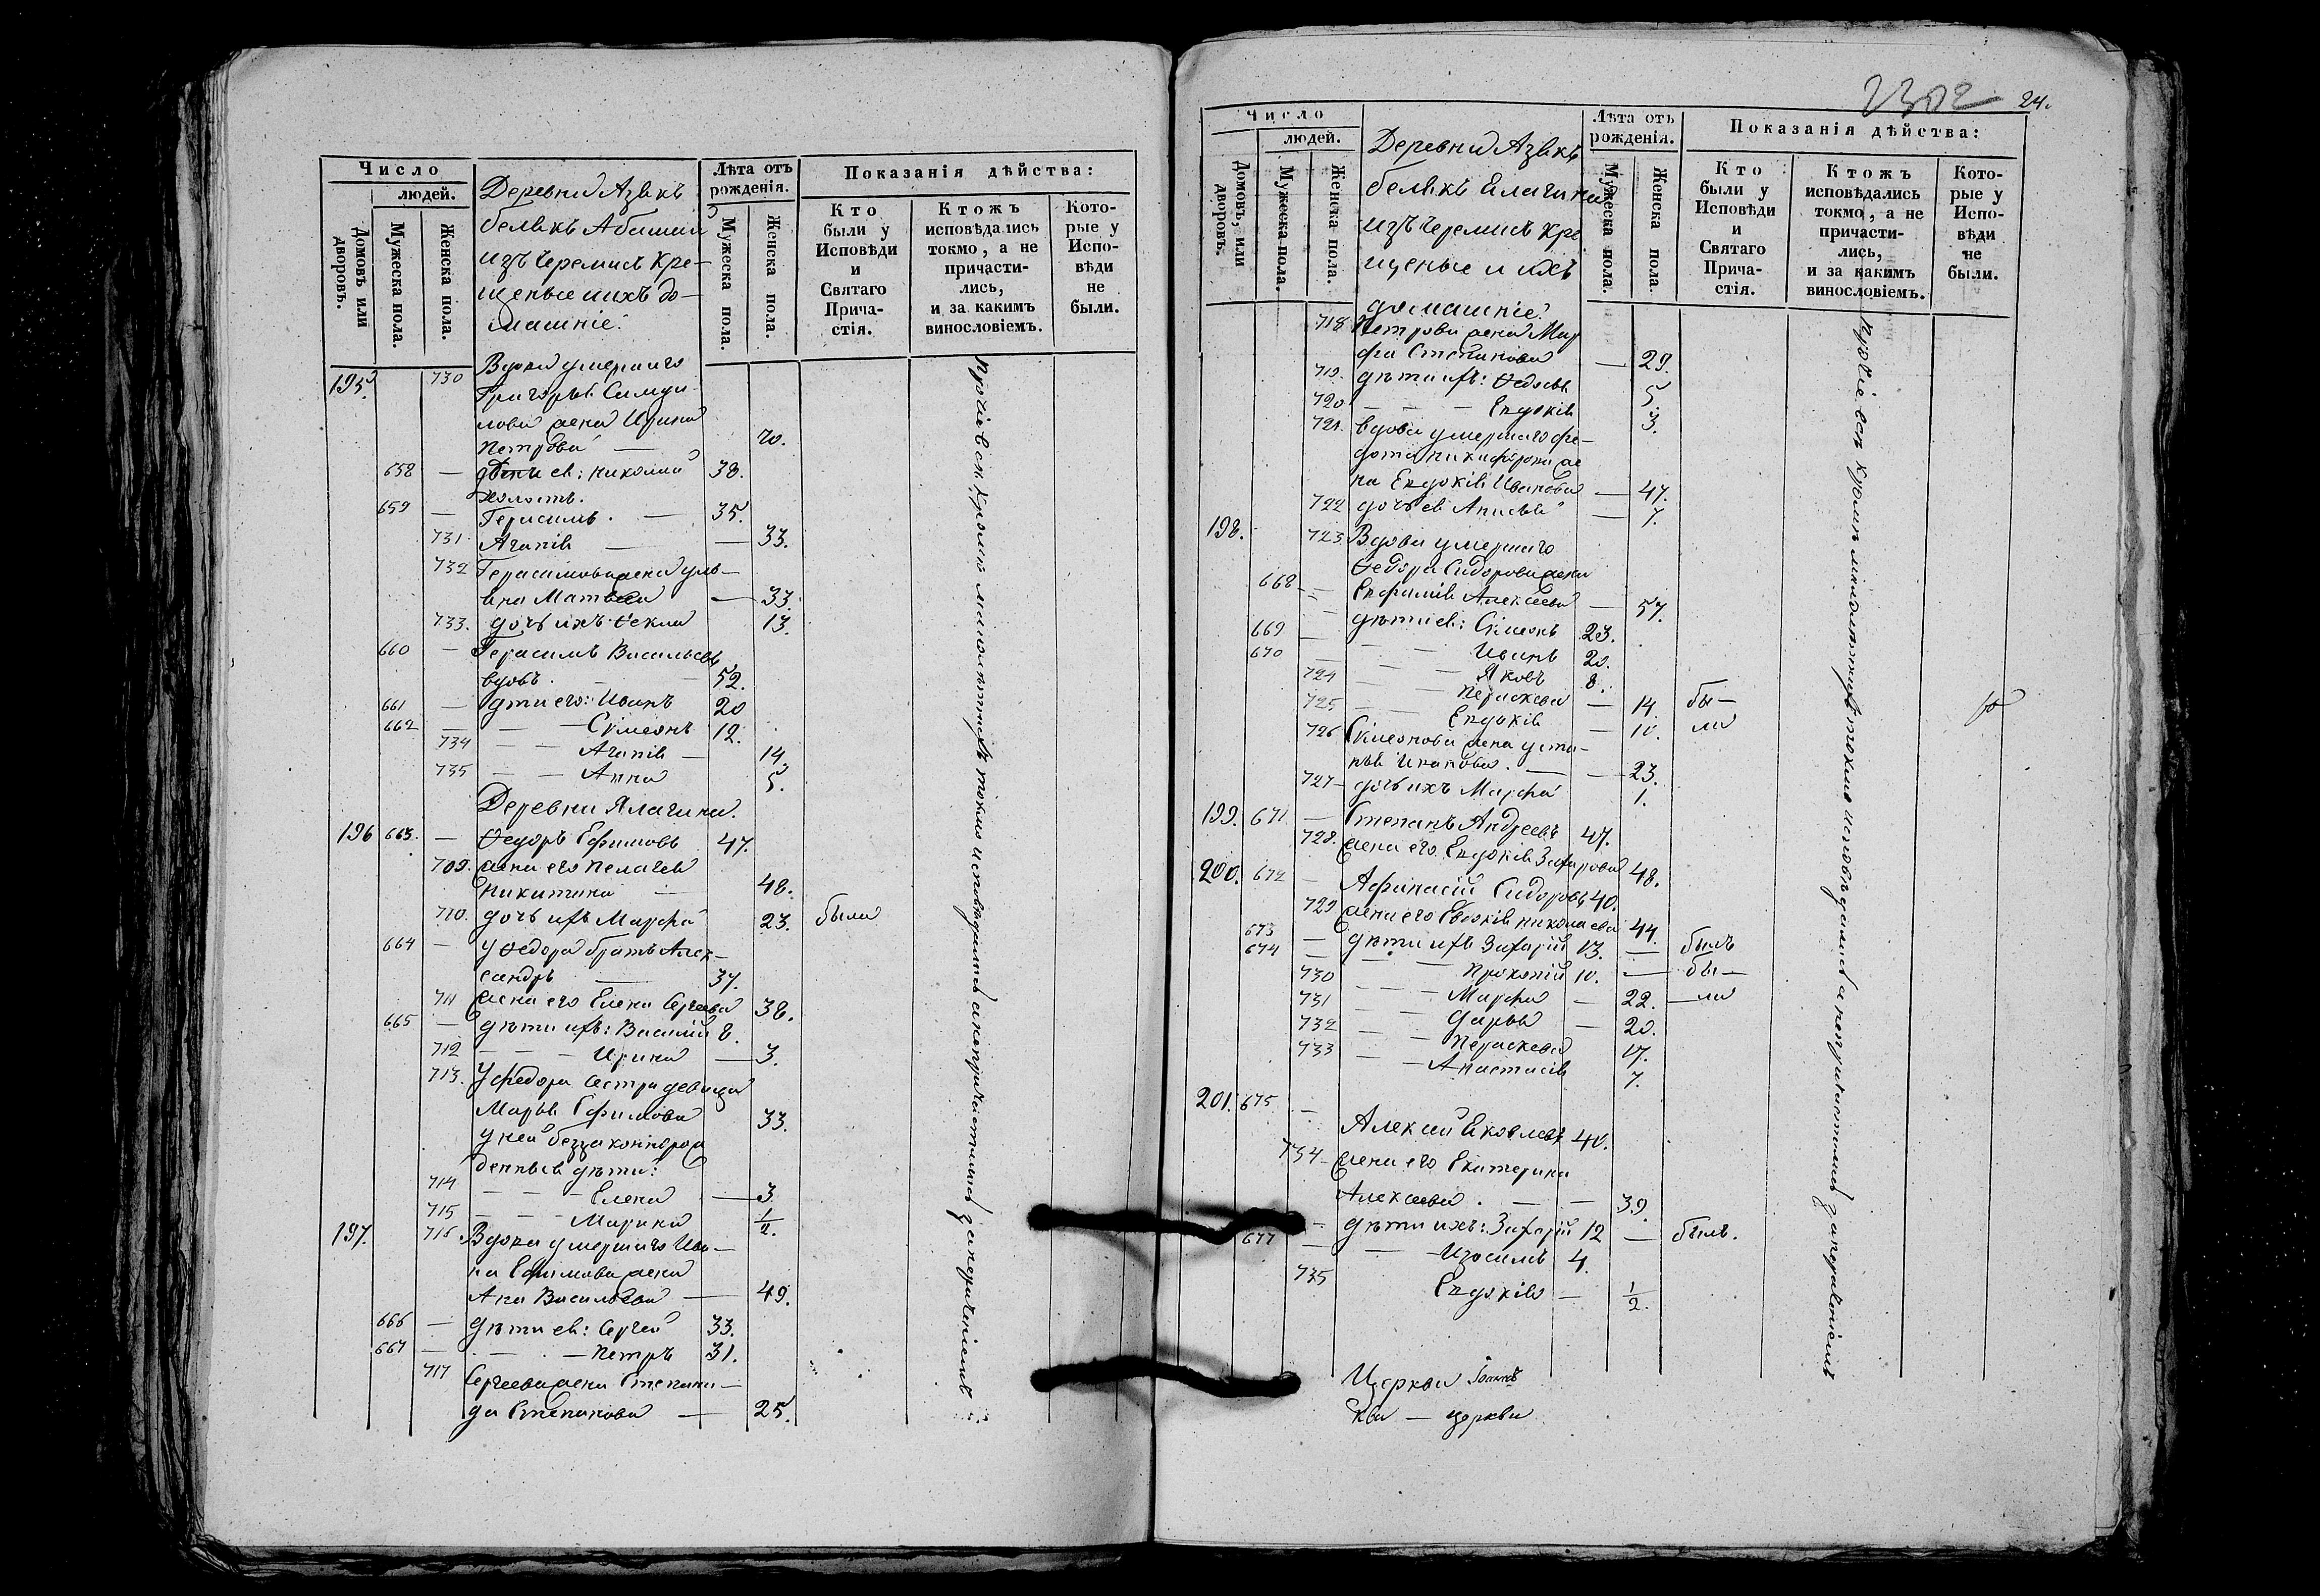 Число
людей.
Домовъ или дворовъ.
Мужеска пола.
Женска пола.
Деревни Азъякъ
белякъ Абашии
изъ черемисъ кре-
щеные и ихъ до-
машніе.
Лѣта отъ рожденія.
Мужеска пола.
Женска пола.
Показанія дѣйства:
Кто были у Исповѣди и Святаго Причастія.
Ктожъ исповѣдались токмо, а не причастились, и за какимъ винословіемъ.
Которые у Исповѣди не были.
195. 730 Вдова умершаго
Григорья Самуи-
лова жена Ирина
Петрова — 70.
658 — дѣти ея: Николай 38.
холостъ.
659 — Герасимъ. — 35.
731 Агапія — — 33.
732 Герасимова жена Улья-
на Матвеева — 33.
733. дочь ихъ Ѳекла 13.
660 — Герасимъ Васильевъ
вдовъ. — 52.
661 — дѣти его: Иванъ 20
662 — — Сѵмеонъ 12.
734 — — Агапія — 14.
735 — — Анна 5.
Деревни Ялагина.
196 663. — Ѳедоръ Ефимовъ 47.
709. жена его Пелагея
Никитина — 48.
710. дочь ихъ Марфа 23. была
664 — у Ѳедора братъ Алек-
сандръ — 37.
711 жена его Елена Сергеева 38.
665 — дѣти ихъ: Василій 8.
712 — — — Ирина — 3.
713. У Ѳедора сестра девица
Марья Ефимова 33.
у ней беззаконнорож
денныя дѣти:
714 — — — Елена — 3
715 — — — Марина 1/2.
197. 716. Вдова умершаго Ива-
на Ефимова жена
Анна Васильева — 49.
666 — дѣти ея: Сергей 33.
667 — — — Петръ 31.
717 Сергеева жена Степани-
да Степанова — 25.
прочіе все кромѣ малолѣтныхъ токмо исповѣдались а не причастились за нераченіемъ
2302
24.
Число
людей.
Домовъ, или дворовъ.
Мужеска пола.
Женска пола.
Деревни Азъякъ
белякъ Елагина
изъ черемисъ кре
щеные и ихъ
домашніе.
Лѣта отъ рожденія.
Мужеска пола.
Женска пола.
Показанія дѣйства:
Кто были у Исповѣди и Святаго Причастія.
Ктожъ исповѣдались токмо, а не причастились, и за какимъ винословіемъ.
Которые у Исповѣди не были.
718 Петрова жена Мар
фа Степанова — 29.
719. дѣти ихъ: Ѳедосья 5.
720 — — — Евдокія 3.
721. вдова умершаго Фе-
дота Никифорова же
на Евдокія Иванова — 47.
722 дочь ея Анисья — 7.
198. 723. Вдова умершаго
Ѳедора Сидорова жена
668 — Евфимія Алексеева — 57.
669 — дѣти ея: Сѵмеонъ 23.
670 — — — Иванъ 20.
— — — Яковъ 8.
724 — — — Параскева — 14. бы-
725 — — Евдокія — 10. ли
726 Сѵмеонова жена Усти-
нья Иванова. — — 23.
727 — дочь ихъ Марфа 1.
199. 671 — Степанъ Андреевъ 47.
728. жена его Евдокія Захарова 48.
200. 672 — Афанасій Сидоровъ 40.
729 жена его Евдокія Николаева 44.
673 — дѣти ихъ Захарій 13. — былъ
674 — — — Прокопій 10. — бы-
730 — — — Марфа — 22. — ли
731 — — Дарья — 20.
732 — — Параскева 17.
733 — — Анастасія 7.
201. 675 — Алексей Яковлевъ 40.
734 — жена его Екатерина
Алексеева. — — 39.
— дѣти ихъ: Захарій 12 — былъ.
677 — — Изосимъ 4.
735 Евдокія — 1/2.
прочіе все кромѣ малолѣтныхъ токмо исповѣдались а не причастились за нераченіемъ
Церкви
церкви